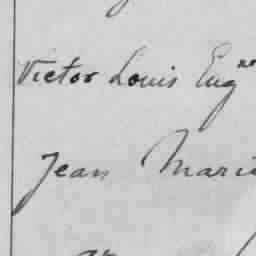 Victor Louis Eug^ne
Jean Marie